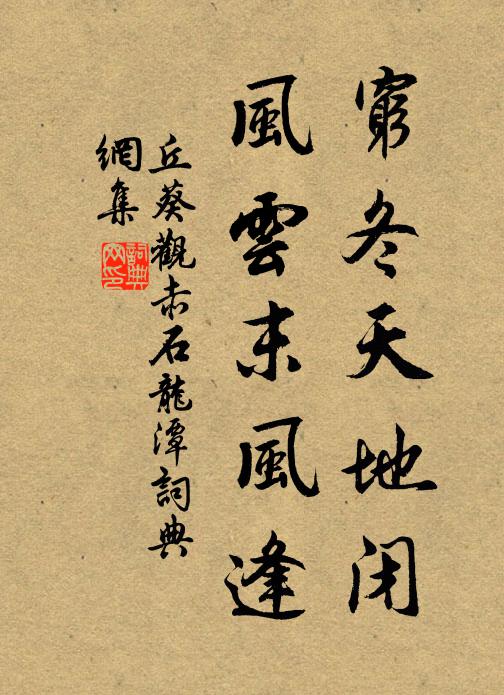 窮冬天地閉
風雲末風逢
丘葵觀赤石龍潭詞典
網集
詞典网印